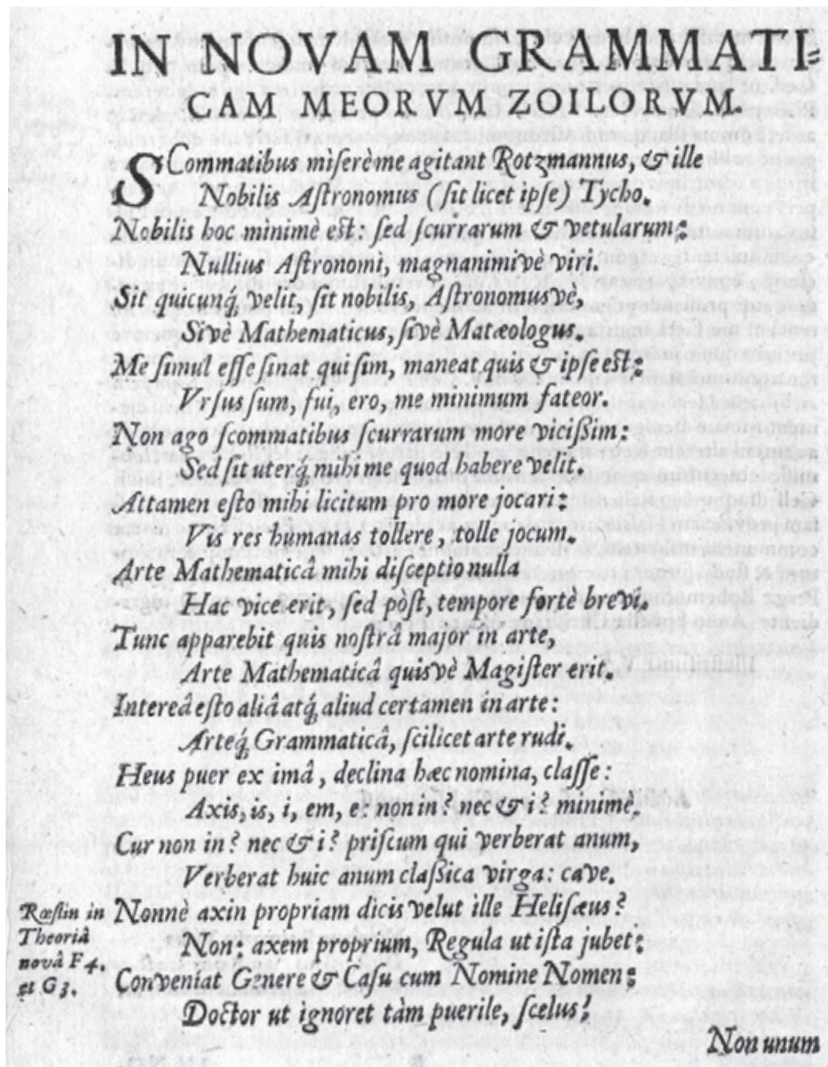 IN NOVAM GRAMMATI=
CAM MEORVM ZOILORVM.
SCommatibus miserè me agitant Rotzmannus, & ille
Nobilis Astronomus (sit licet ipse) Tycho.
Nobilis hoc minimè est: sed scurrarum & vetularum:
Nullius Astronomi, magnanimivè viri.
Sit quicunq́; velit, sit nobilis, Astronomusvè,
Sivè Mathematicus, sivè Matæologus.
Me simul esse sinat qui sim, maneat quis & ipse est:
Vrsus sum, fui, ero, me minimum fateor.
Non ago scommatibus scurrarum more vicißim:
Sed sit uterq́; mihi me quod habere velit.
Attamen esto mihi licitum pro more jocari:
Vis res humanas tollere, tolle jocum.
Arte Mathematicâ mihi disceptio nulla
Hac vice erit, sed pòst, tempore fortè brevi.
Tunc apparebit quis nostrâ major in arte,
Arte Mathematicâ quisvè Magister erit.
Intereâ esto aliâ atq́; aliud certamen in arte:
Arteq́; Grammaticâ, scilicet arte rudi.
Heus puer ex imâ, declina hæc nomina, classe:
Axis, is, i, em, e: non in? nec & i? minimè.
Cur non in? nec & i? priscum qui verberat anum,
Verberat huic anum claßica virga: cave.
Nonnè axin propriam dicis velut ille Helisæus?
Non: axem proprium, Regula ut ista jubet:
Conveniat Genere & Casu cum Nomine Nomen:
Doctor ut ignoret tàm puerile, scelus!
Rœslin in
Theoriâ
novâ F4.
et G3.
Non unum